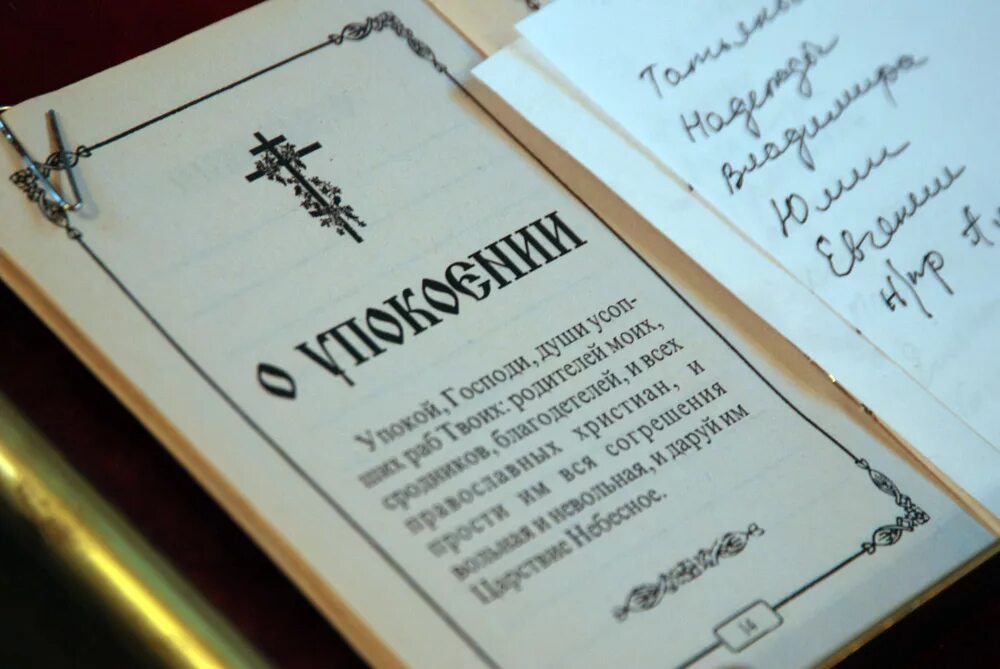 О УПОКОЕНИИ
Упокой, Господи, души усоп-
ших раб Твоих: родителей моих,
сродников, благодетелей, и всех
православных христиан, и
прости им вся согрешения
вольная и невольная, и даруй им
Царствие Небесное.
14
Надежды
Владимира
Юлии
Евгении
н/пр